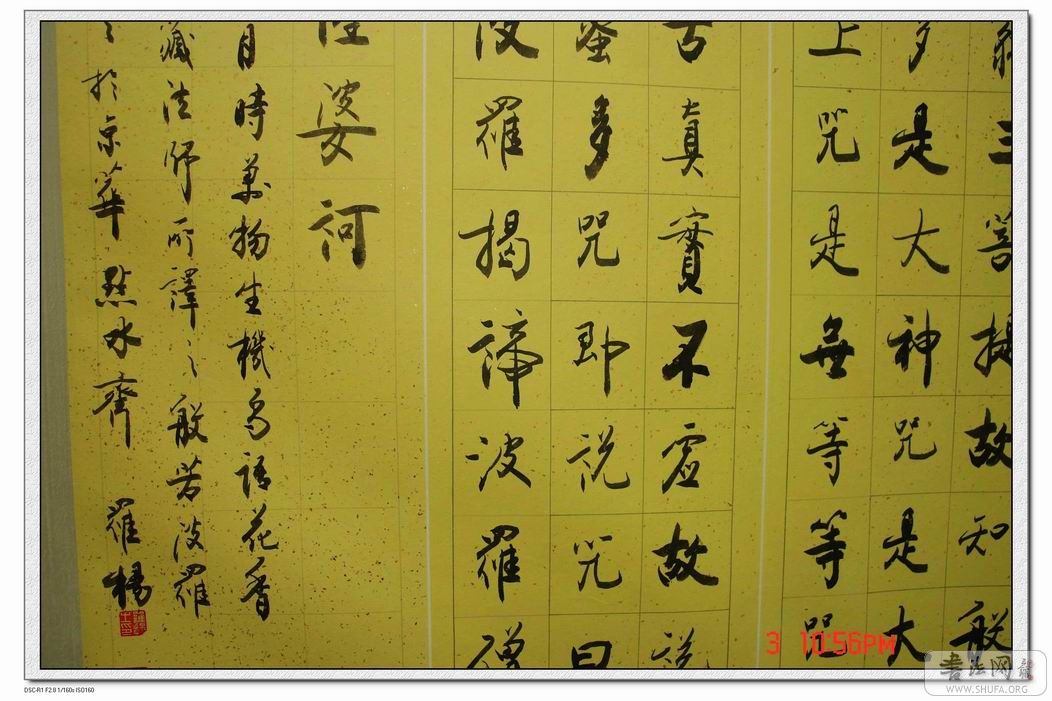 三菩提故知般
多是大神咒是大
上咒是無等等咒
古真實不虛故說
蜜多咒即説咒曰
波羅揭諦波羅僧
婆訶
月時萬物生機鸟語花香
藏法師所譯之般若波羅
於京華點水齊羅楊
3 10:56PM
書法网
WWW.SHUFA.ORG
DSC-R1 F2.8 1/160s ISO160